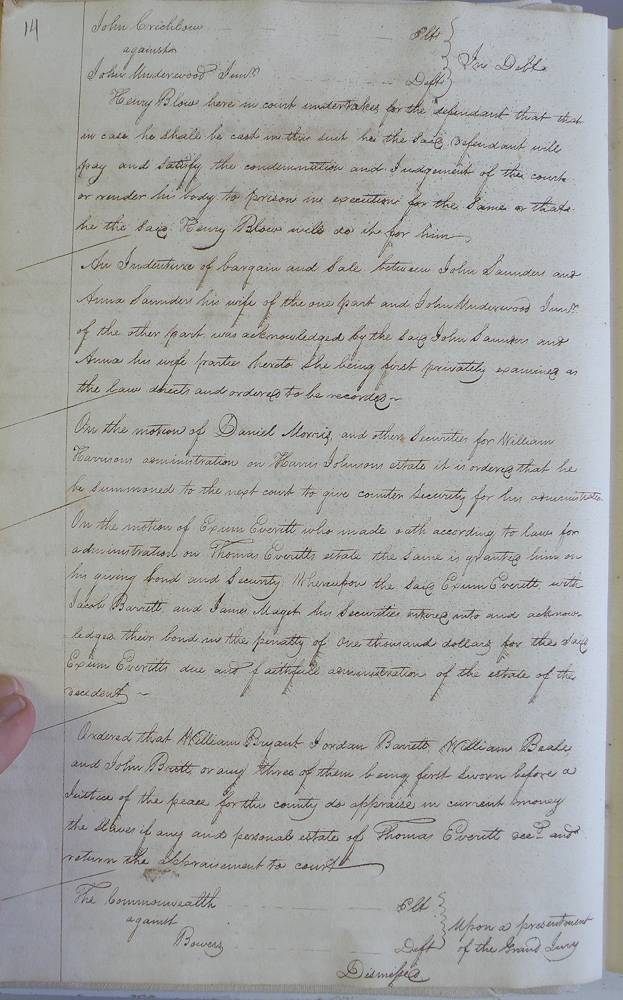 14
John Crichlow Plt
against In Debt
John Underwood Junr. Deft
Henry Blow here in court undertakes for the defendant that that
in case he shall be cast in this suit he the said Defendant will
pay and satisfy the condemnation and Judgement of the court
or render his body to prison in execution for the same or that
he the said Henry Blow will do it for him
An Indenture of bargain and Sale between John Saunders and
Anna Saunders his wife of the one part and John Underwood Junr.
of the other part was acknowledged by the said John Saunders and
Anna his wife parties hereto she being first privately examined as
the law directs and ordered to be recorded
On the motion of Daniel Morris, and other Securities for William
Harrisons administration on Harris Johnsons estate it is ordered that he
be summoned to the next court to give counter Security for his
On the motion of Exum Everitt who made oath according to law for
administration on Thomas Everitts estate the same is granted him on
his giving bond and Security Whereupon the said Exum Everitt with
Jacob Barrett, and James Maget his Securities entered into and acknow-
ledged their bond in the penalty of One thousand dollars for the said
Exum Everitts due and faithfull administration of the estate of the
decedent
Ordered that William Bryant Jordan Barrett William Beale
and John Britt, or any three of them being first sworn before a
Justice of the peace for this county do appraise in current money
the slaves if any and personal estate of Thomas Everitt decd. and
return the appraisement to court
The Commonwealth Plt
against Upon a presentment
Bowers Deft of the Grand Jury
Dismissed